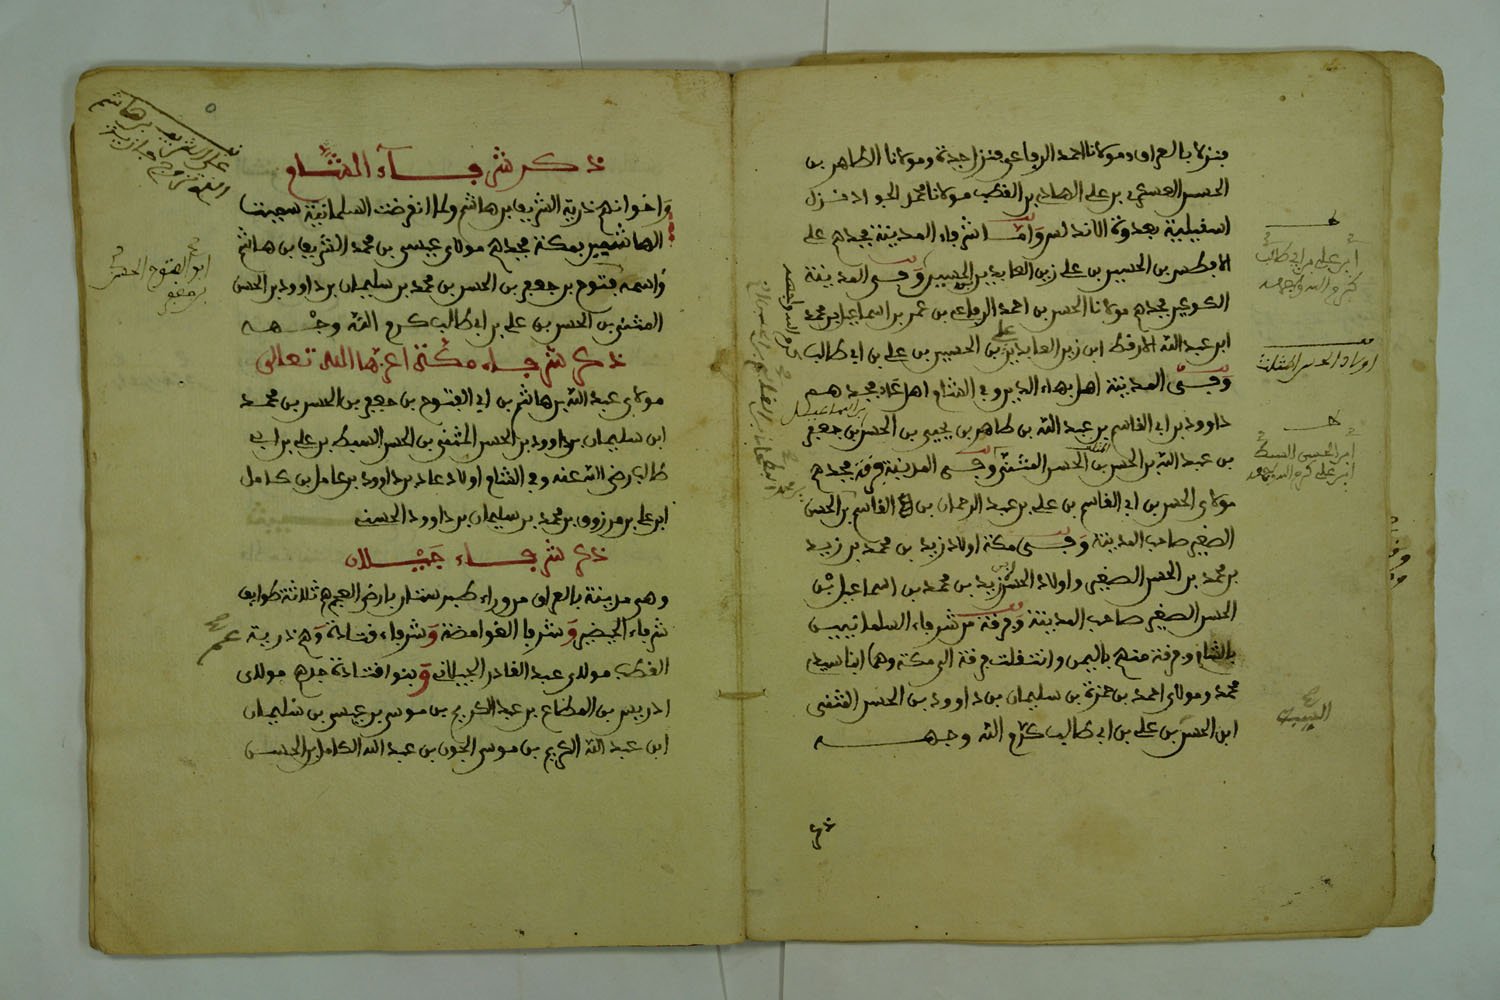 فنزلا بالعراق ومولانا احمد الرفاعي فنزل جدة ومولانا الطاهر بن
الحسن العسكري بن علي الهادي بن القطب مولانا محمد الجواد فنزل
اشبيلية بعدوة الاندلس وأما شرفاء المدينة فجدهم علي
الافطس بن الحسين بن علي زين العابدين بن الحسين وفي المدينة
الكوعين فجدهم مولانا الحسن بن احمد الرفاعي بن عمر بن اسماعيل بن محمد
ابن عبد الله الارقط ابن زين العابدين علي بن الحسين بن علي بن ابي طالب
وفي المدينة اهل بهاء الدين وفي الشام اهل فجدهم
داوود بن ابي القاسم بن عبد الله بن طاهر بن يحيى بن الحسن بن جعفر
بن عبد الله بن الحسن بن الحسن المثنى وفي المدينة فرقة فجدهم
مولاي الحسن بن ابي القاسم بن علي بن عبد الرحمان بن القاسم بن الحسن
الصغير صاحب المدينة وفي مكة اولاد زيد بن محمد بن زيد
بن محمد بن الحسن الصغير واولاد الحسن بن زيد بن محمد بن اسماعيل بن
الحسن الصغير صاحب المدينة وفرقة من شرفاء السلمانيين
بالشام وفرقة منهم باليمن وانتقلت فرقة الى مكة وهما ابنا سيد
محمد ومولاي احمد بن حمزة بن سليمان بن داوود بن الحسن المثنى
ابن الحسن بن علي بن ابي طالب كرم الله وجهه
ابن علي بن ابي طالب
كرم الله وجهه
اولاد الحسن المثلث
ابن الحسن السبط
ابن علي كرم الله وجهه
ذكر شرفاء الشام
واخوانهم ذرية الشريف بن هاشم ولما انقرضت السلمانية سميت
الهاشميين بمكة فجدهم مولاي عيسى بن محمد الشريف بن هاشم
واسمه فتوح بن جعفر بن الحسن بن محمد بن سليمان بن داوود بن الحسن
المثنى بن الحسن بن علي بن ابي طالب كرم الله وجهه
ذكر شرفاء مكة اعزها الله تعالى
مولاي عبد الله بن هاشم بن ابي الفتوح بن جعفر بن الحسن بن محمد
ابن سليمان بن داوود بن الحسن المثنى بن الحسن السبط بن علي بن ابي
طالب رضي الله عنه وفي الشام اولاد عاد بن داوود بن عامل بن كامل
ابن علي بن مرزوق بن محمد بن سليمان بن داوود الحسني
ذكر شرفاء جيلان
وهي مدينة بالعراق من وراء طبرستان بارض العجم هم ثلاثة طوايف
شرفاء الخيضير وشرفا الغوامضة وشرفاء قتادة وهم ذرية
القطب مولاي عبد القادر الجيلاني وبنو قتادة جدهم مولاي
ادريس بن المطاع بن عبد الكريم بن موسى بن عيسى بن سليمان
ابن عبد الله الكريم بن موسى الجون بن عبد الله الكامل بن الحسن
ابو الفتوح الحسن
بن جعفر